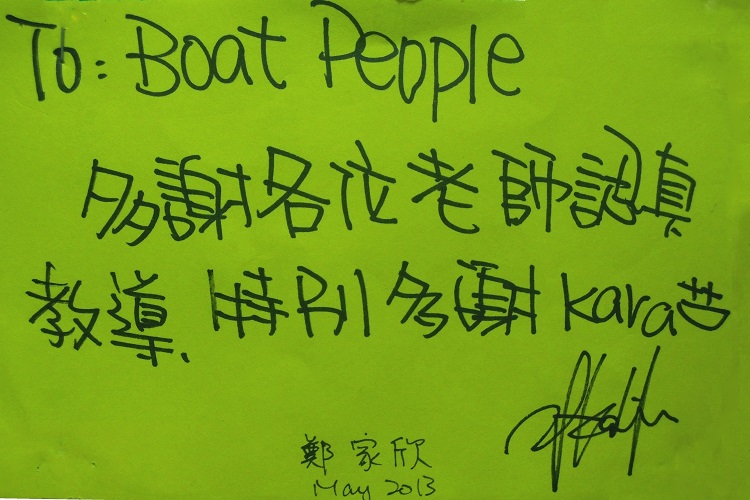 To: Boat People
多謝各位老師認真
教導、特別多謝 Kara
鄭家欣
May 2013